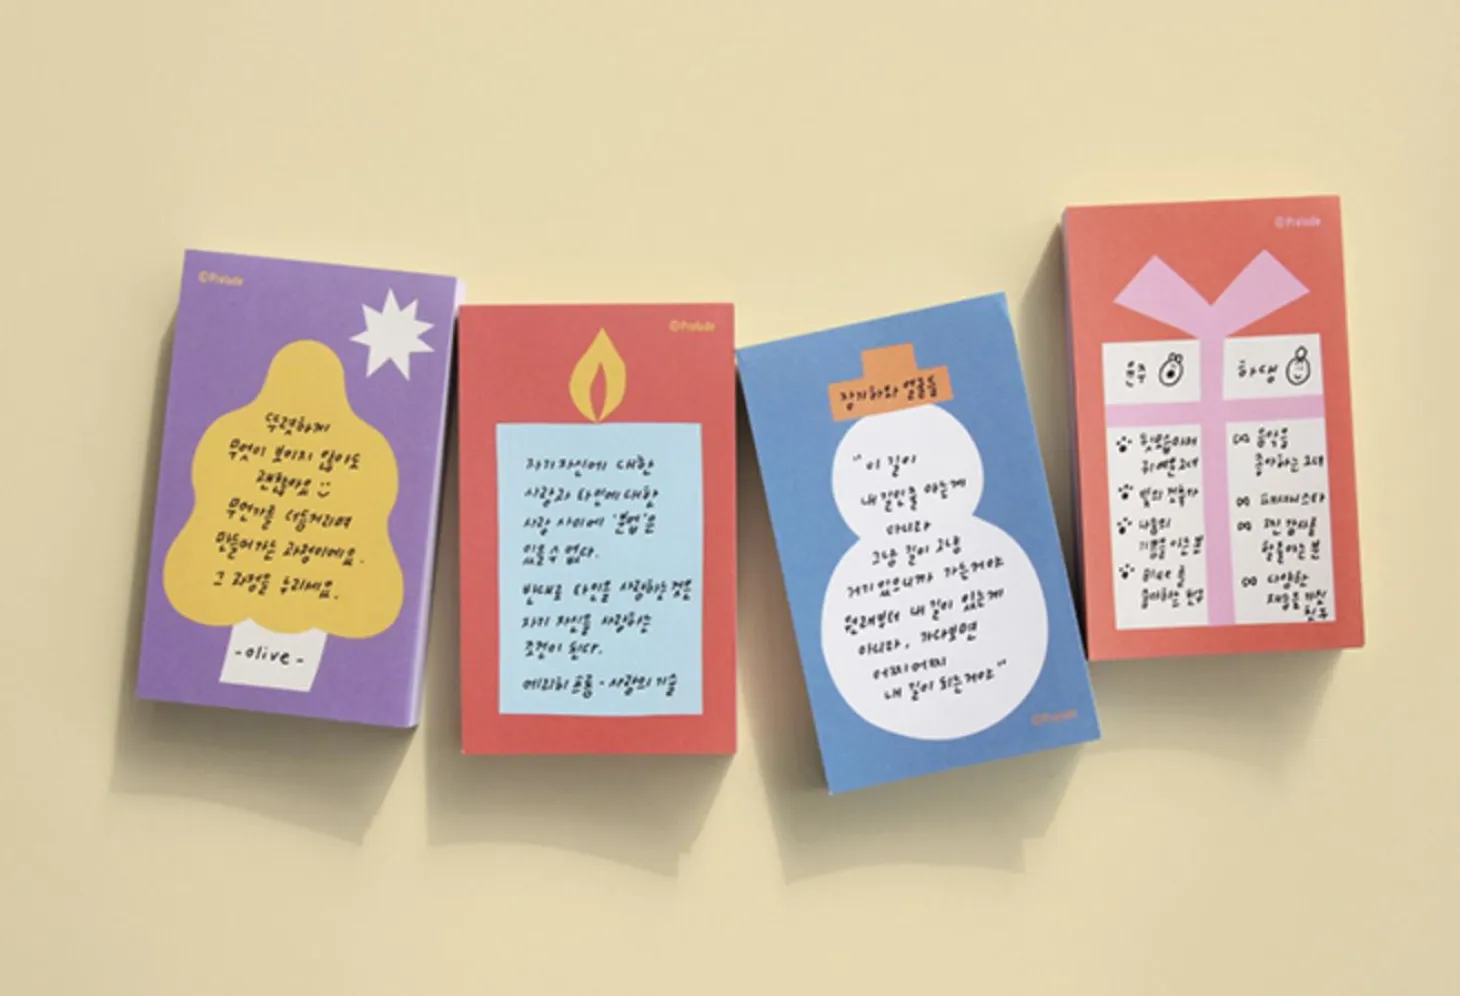 ©Prelude
뚜렷하게
무엇이 보이지 않아도
괜찮아요
무언가를 더듬거리며
만들어가는 과정이에요.
그 과정을 누리세요.
-olive-
©Prelude
자기 자신에 대한
사랑과 타인에 대한
사랑 사이에 '분업'은
있을 수 없다.
반대로 타인을 사랑하는 것은
자기 자신을 사랑하는
조건이 된다.
에리히 프롬 - 사랑의 기술
장기하와 얼굴들
"이 길이
내 길인줄 아는게
아니라
그냥 길이 그냥
거기 있으니까 가는거야
원래부터 내 길이 있는게
아니라, 가다보면
어찌어찌
내 길이 되는거야"
©Prelude
©Prelude
윤주
빛의 건축가
나눔의
기쁨을 아는 분
하영
음악을
좋아하는 그녀
패셔니스타
다양한
재능을 가진
친구